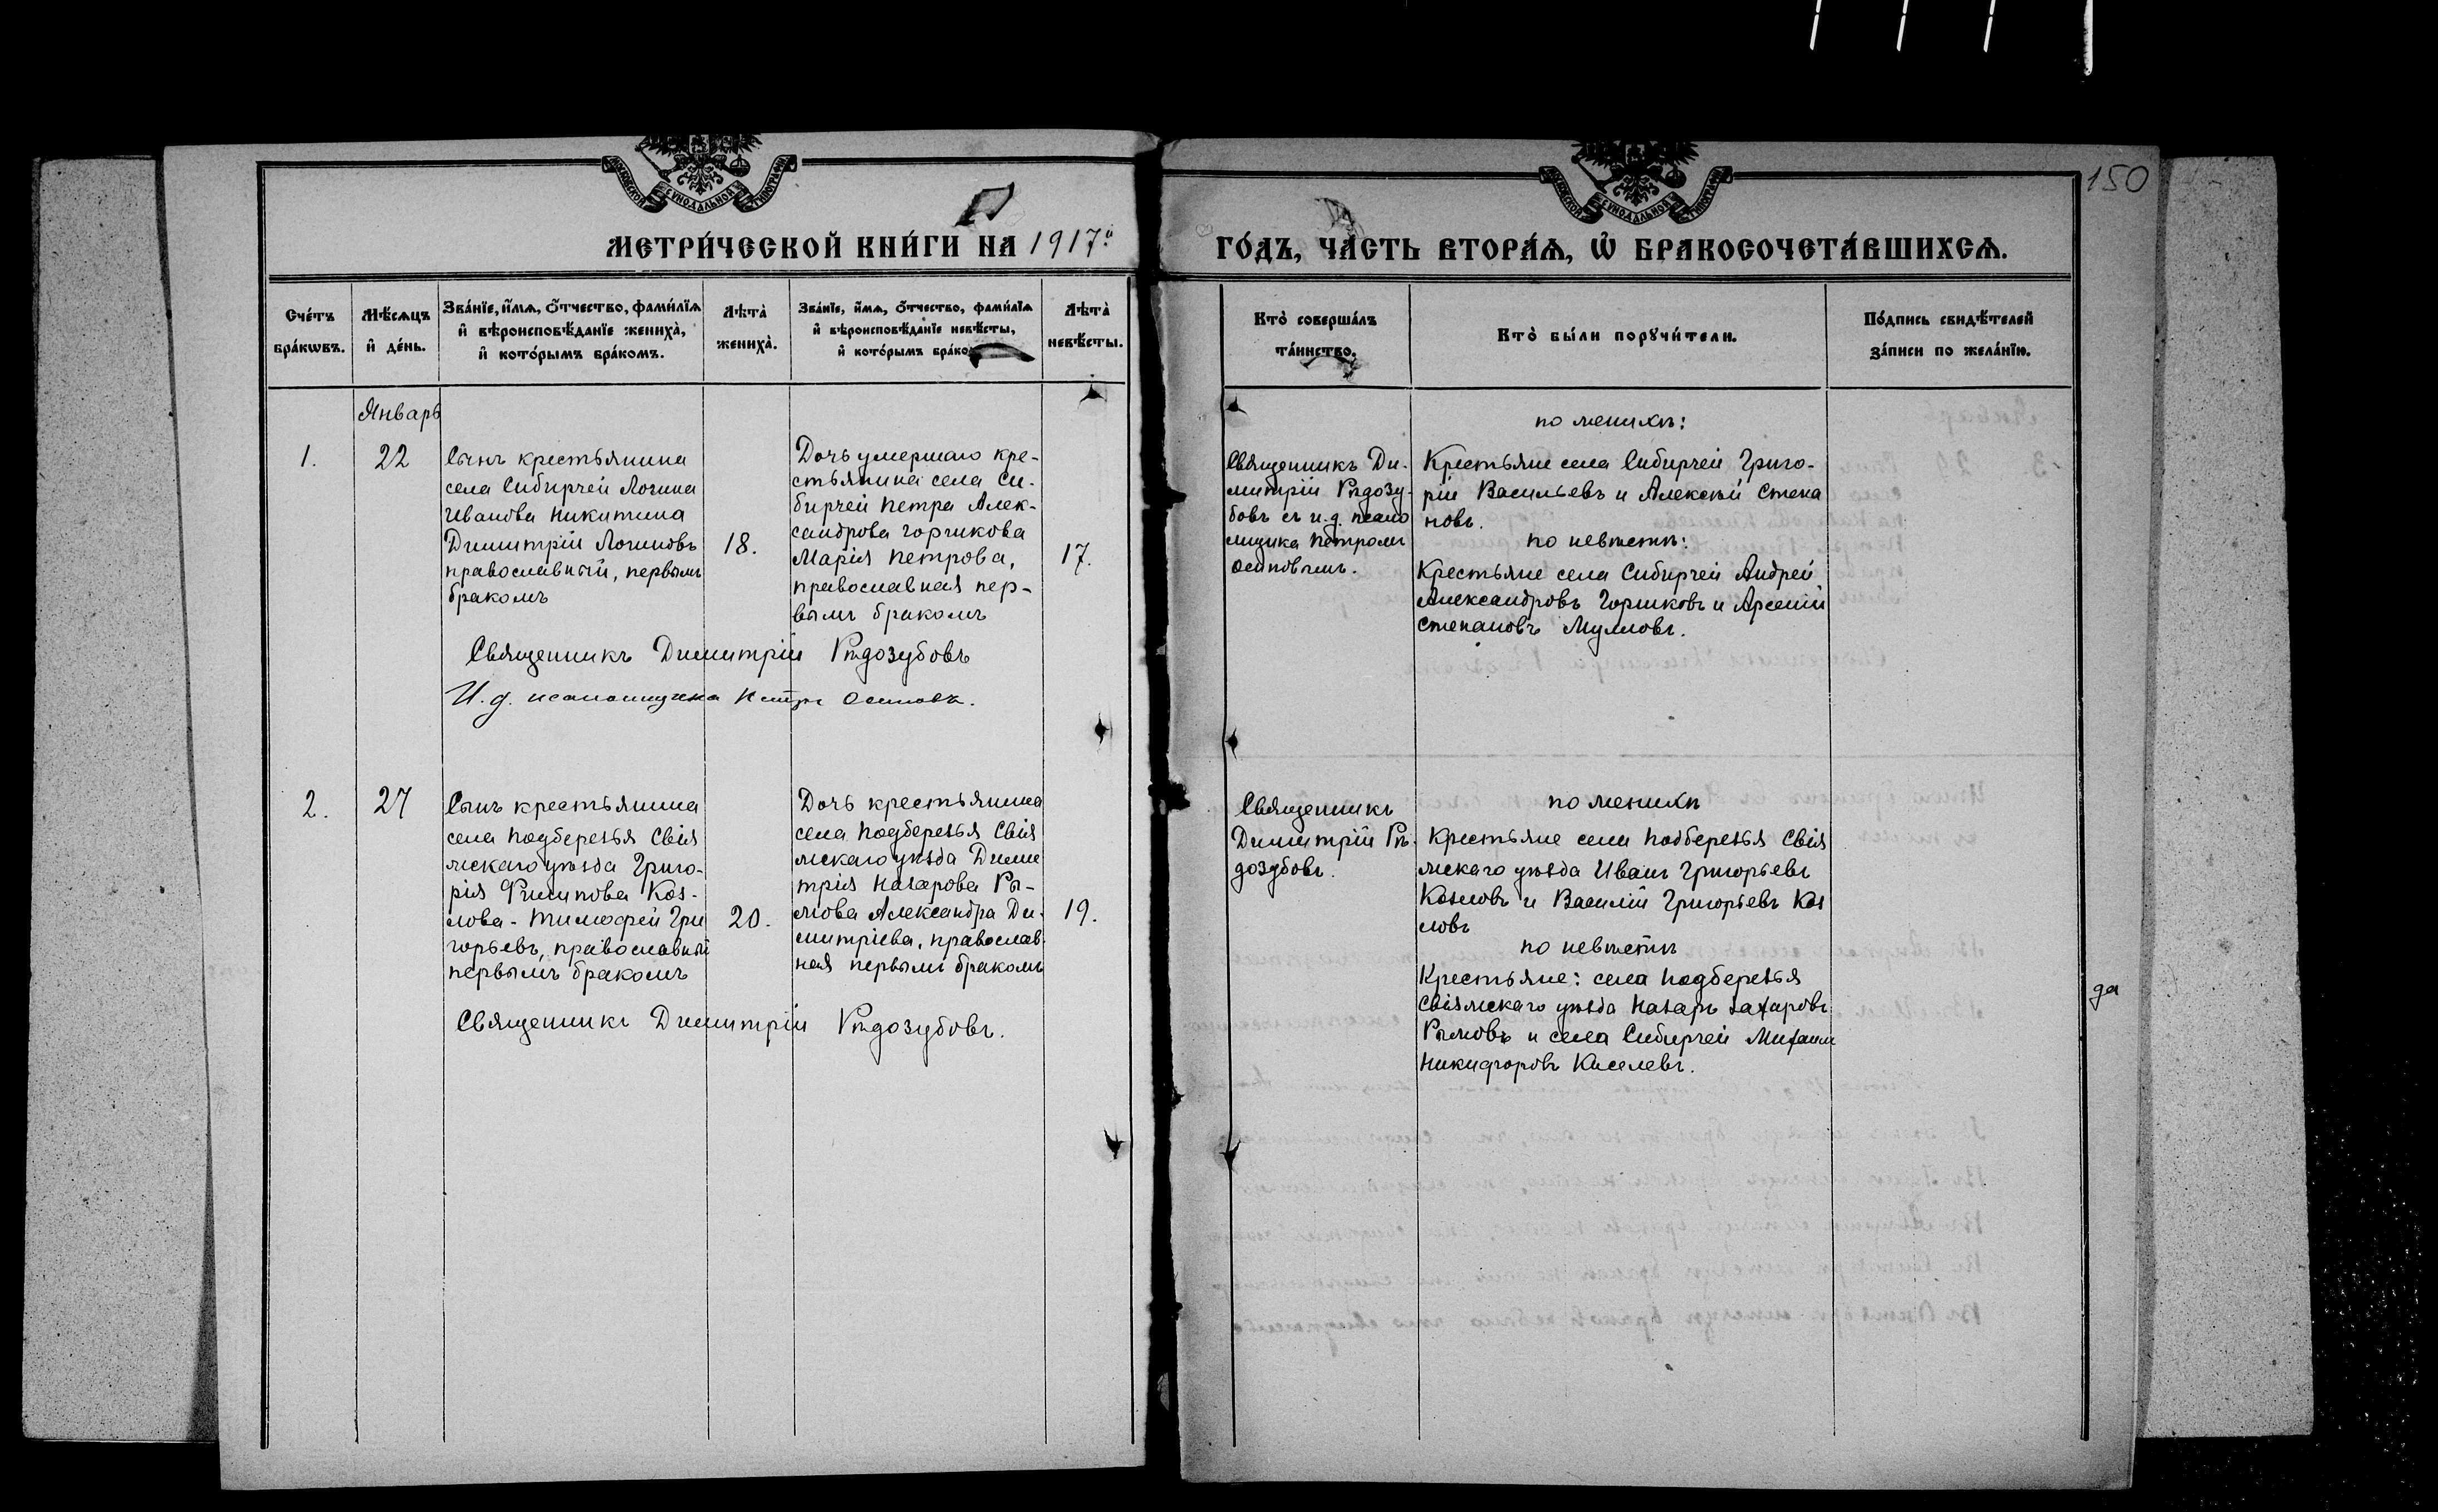 150
МЕТРИ́ЧЕСКОЙ КНИ́ГИ НА 1917й
ГО́ДЪ, ЧА́СТЬ ВТОРА́Ѧ, Ѡ҆ БРАКОСОЧЕТА́ВШИХСѦ.
Сче́тъ бра́кѡвъ.
Мѣ́сѧцъ и҆ де́нь.
Зва́нїе, и҆́мѧ, ѻ҆́тчество, фами́лїѧ
и҆ вѣроисповѣ́данїе жениха̀,
и҆ кото́рымъ бра́комъ.
Лѣта̀ жениха̀.
Зва́нїе, и҆́мѧ, ѻ҆́тчество, фами́лїѧ
и҆ вѣроисповѣ́данїе невѣ́сты,
и҆ кото́рымъ бра́ко
Лѣта̀ невѣ́сты.
Кто̀ соверша́лъ та́инство.
Кто̀ бы́ли порꙋчи́тели.
По́дпись свидѣ́телей за́писи по жела́нїю.
Январь
1.
22
Сынъ крестьянина
села Сибирчей Логина
Иванова Никитина
Димитрій Логиновъ
православный, первымъ
бракомъ
18.
Дочь умершаго кре-
стьянина села Си-
бирчей Петра Алек-
сандрова Горшкова
Марія Петрова,
православная пер-
вымъ бракомъ
17.
Священникъ Димитрій Рѣдозубовъ
И.д. псаломщика Петръ Осиповъ.
Священникъ Ди-
митрій Рѣдозу-
бовъ съ и.д. псало
мщика Петромъ
Осиповымъ.
по женихѣ:
Крестьяне села Сибирчей Григо-
рій Васильевъ и Алексѣй Степа
новъ.
по невѣстѣ:
Крестьяне села Сибирчей Андрей
Александровъ Горшковъ и Арсеній
Степановъ
2.
27
Сынъ крестьянина
села Подберезья Свія
жскаго уѣзда Григо-
рія Филипова Коз-
лова - Тимофей Гри
горьевъ, православный
первымъ бракомъ
20.
Дочь крестьянина
села Подберезья Свія
жскаго уѣзда Дими
трія Назарова Ры-
жова Александра Ди-
митріева, православ-
ная первымъ бракомъ
19.
Священникъ Димитрій Рѣдозубовъ.
Священникъ
Димитрій Рѣ-
дозубовъ.
по женихѣ
Крестьяне села Подберезья Свія
жскаго уѣзда Иванъ Григорьевъ
Козловъ и Василій Григорьевъ Коз
ловъ
по невѣстѣ
Крестьяне: села Подберезья
Свіяжскаго уѣзда Назаръ Захаровъ
Рыжовъ и села Сибирчей Михаилъ
Никифоровъ Киселевъ.
да